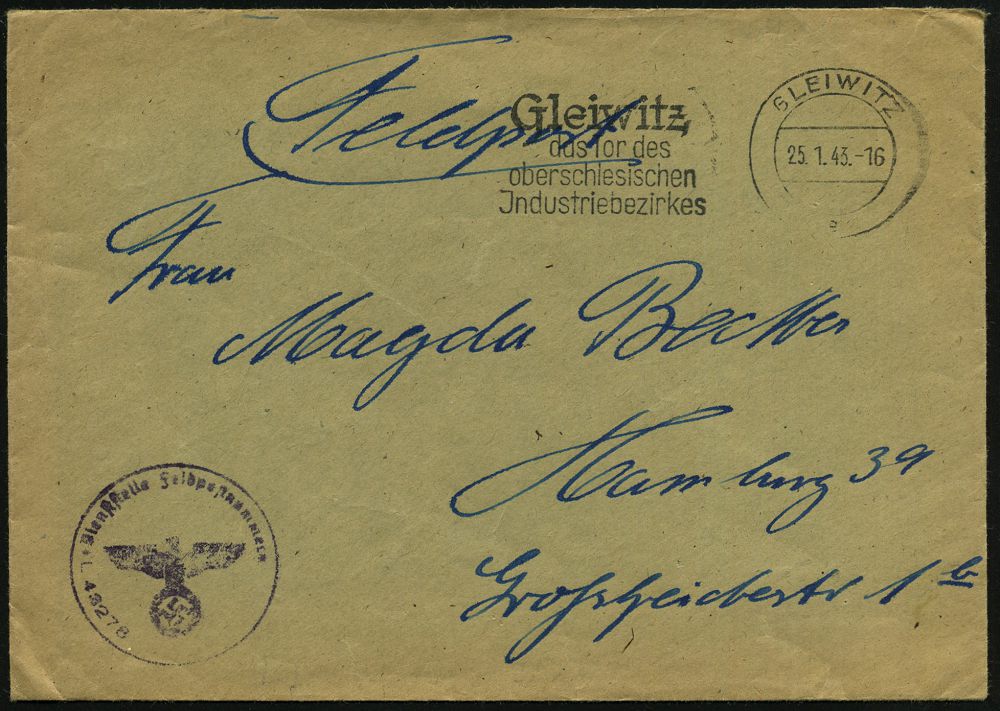 Feldpost
Gleiwitz
das Tor des
oberschlesischen
Industriebezirkes
GLEIWITZ
25.1.43.-16
a
Frau
Magda Becker
Hamburg 39
Großheidestr 1 b
Dienststelle Feldpostnummer
43278